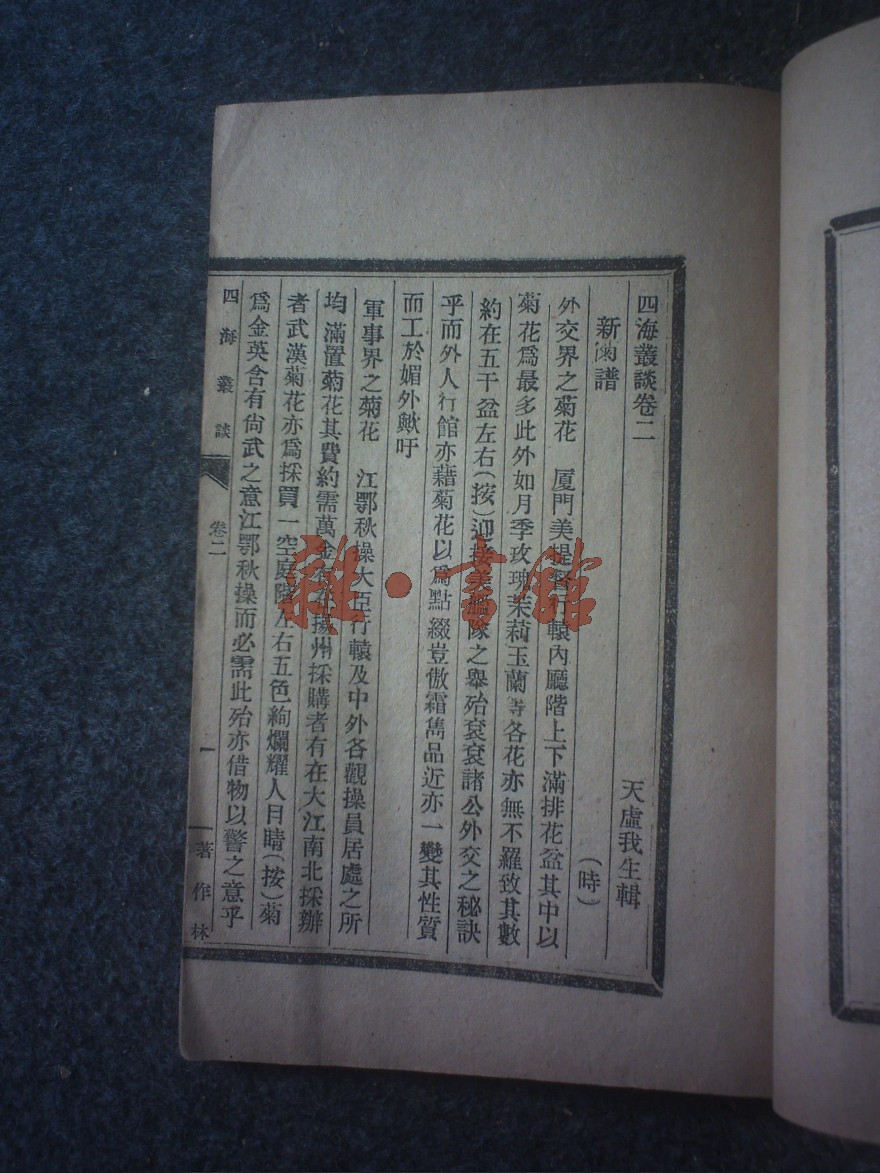 四海叢談卷二
天虛我生輯
新菊譜
(時)
外交界之菊花 厦門美提督行轅內廳階上下滿排花盆其中以
菊花爲最多此外如月季玫瑰茉莉玉蘭等各花亦無不羅致其數
約在五千盆左右(按)迎接美艦隊之舉殆袞袞諸公外交之秘訣
乎而外人行館亦藉菊花以爲點綴豈傲霜雋品近亦一變其性質
而工於媚外歟吁
軍事界之菊花 江鄂秋操大臣行轅及中外各觀操員居處之所
均滿置菊花其費約需萬金有在揚州採購者有在大江南北採辦
者武漢菊花亦爲採買一空庭階左右五色絢爛耀人目晴(按)菊
爲金英含有尙武之意江鄂秋操而必需此殆亦借物以警之意乎
四海叢談
卷二
一
著作林
雜·書館